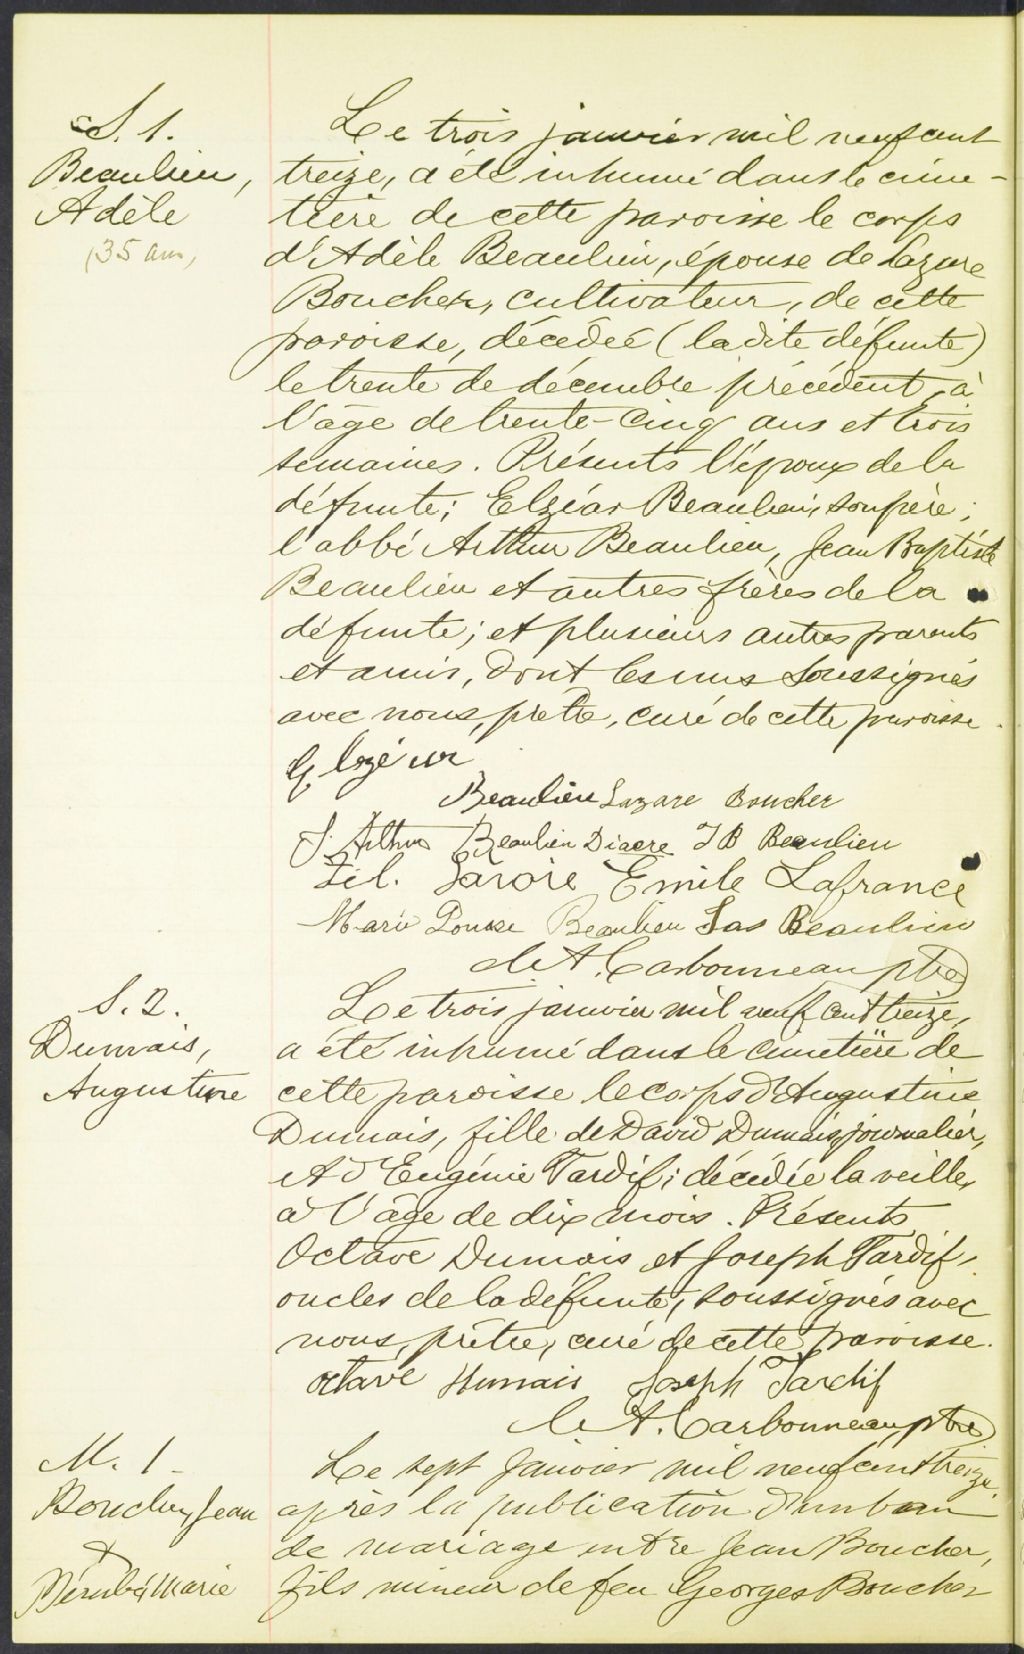 S. 1.
Beaulieu,
Adèle
(35 ans)
Le trois janvier mil neuf cent
treize, a été inhumé dans le cime-
tière de cette paroisse le corps
d'Adèle Beaulieu, épouse de Lazare
Boucher, cultivateur, de cette
paroisse, décédée (ladite défunte)
le trente de décembre précédent, à
l'âge de trente-cinq ans et trois
semaines. Présents l'époux de la
défunte; Elzéar Beaulieu, son père;
l'abbé Arthur Beaulieu, Jean Baptiste
Beaulieu et autres frères de la
défunte; et plusieurs autres parents
et amis, dont les uns soussignés
avec nous, prêtre, curé de cette paroisse.
Beaulieu Lazare Boucher
J. Arthur Beaulieu Diacre J B Beaulieu
Fil. Savoie Emile Lafrance
Marie Beaulieu Jas Beaulieu
A. Carbonneau ptre
S. 2.
Dumais,
Augustine
Le trois janvier mil neuf cent treize,
a été inhumé dans le cimetière de
cette paroisse le corps d'Augustine
Dumais, fille de David Dumais, journalier,
et d'Eugénie Tardif; décédée la veille,
à l'âge de dix mois. Présents
Octave Dumais et Joseph Tardif,
oncles de la défunte, soussignés avec
nous, prêtre, curé de cette paroisse.
octave Dumais Joseph Tardif
A. Carbonneau ptre
M. 1
Boucher, Jean
&
Bérubé, Marie
Le sept janvier mil neuf cent treize,
après la publication d'un ban
de mariage entre Jean Boucher,
fils mineur de feu Georges Boucher